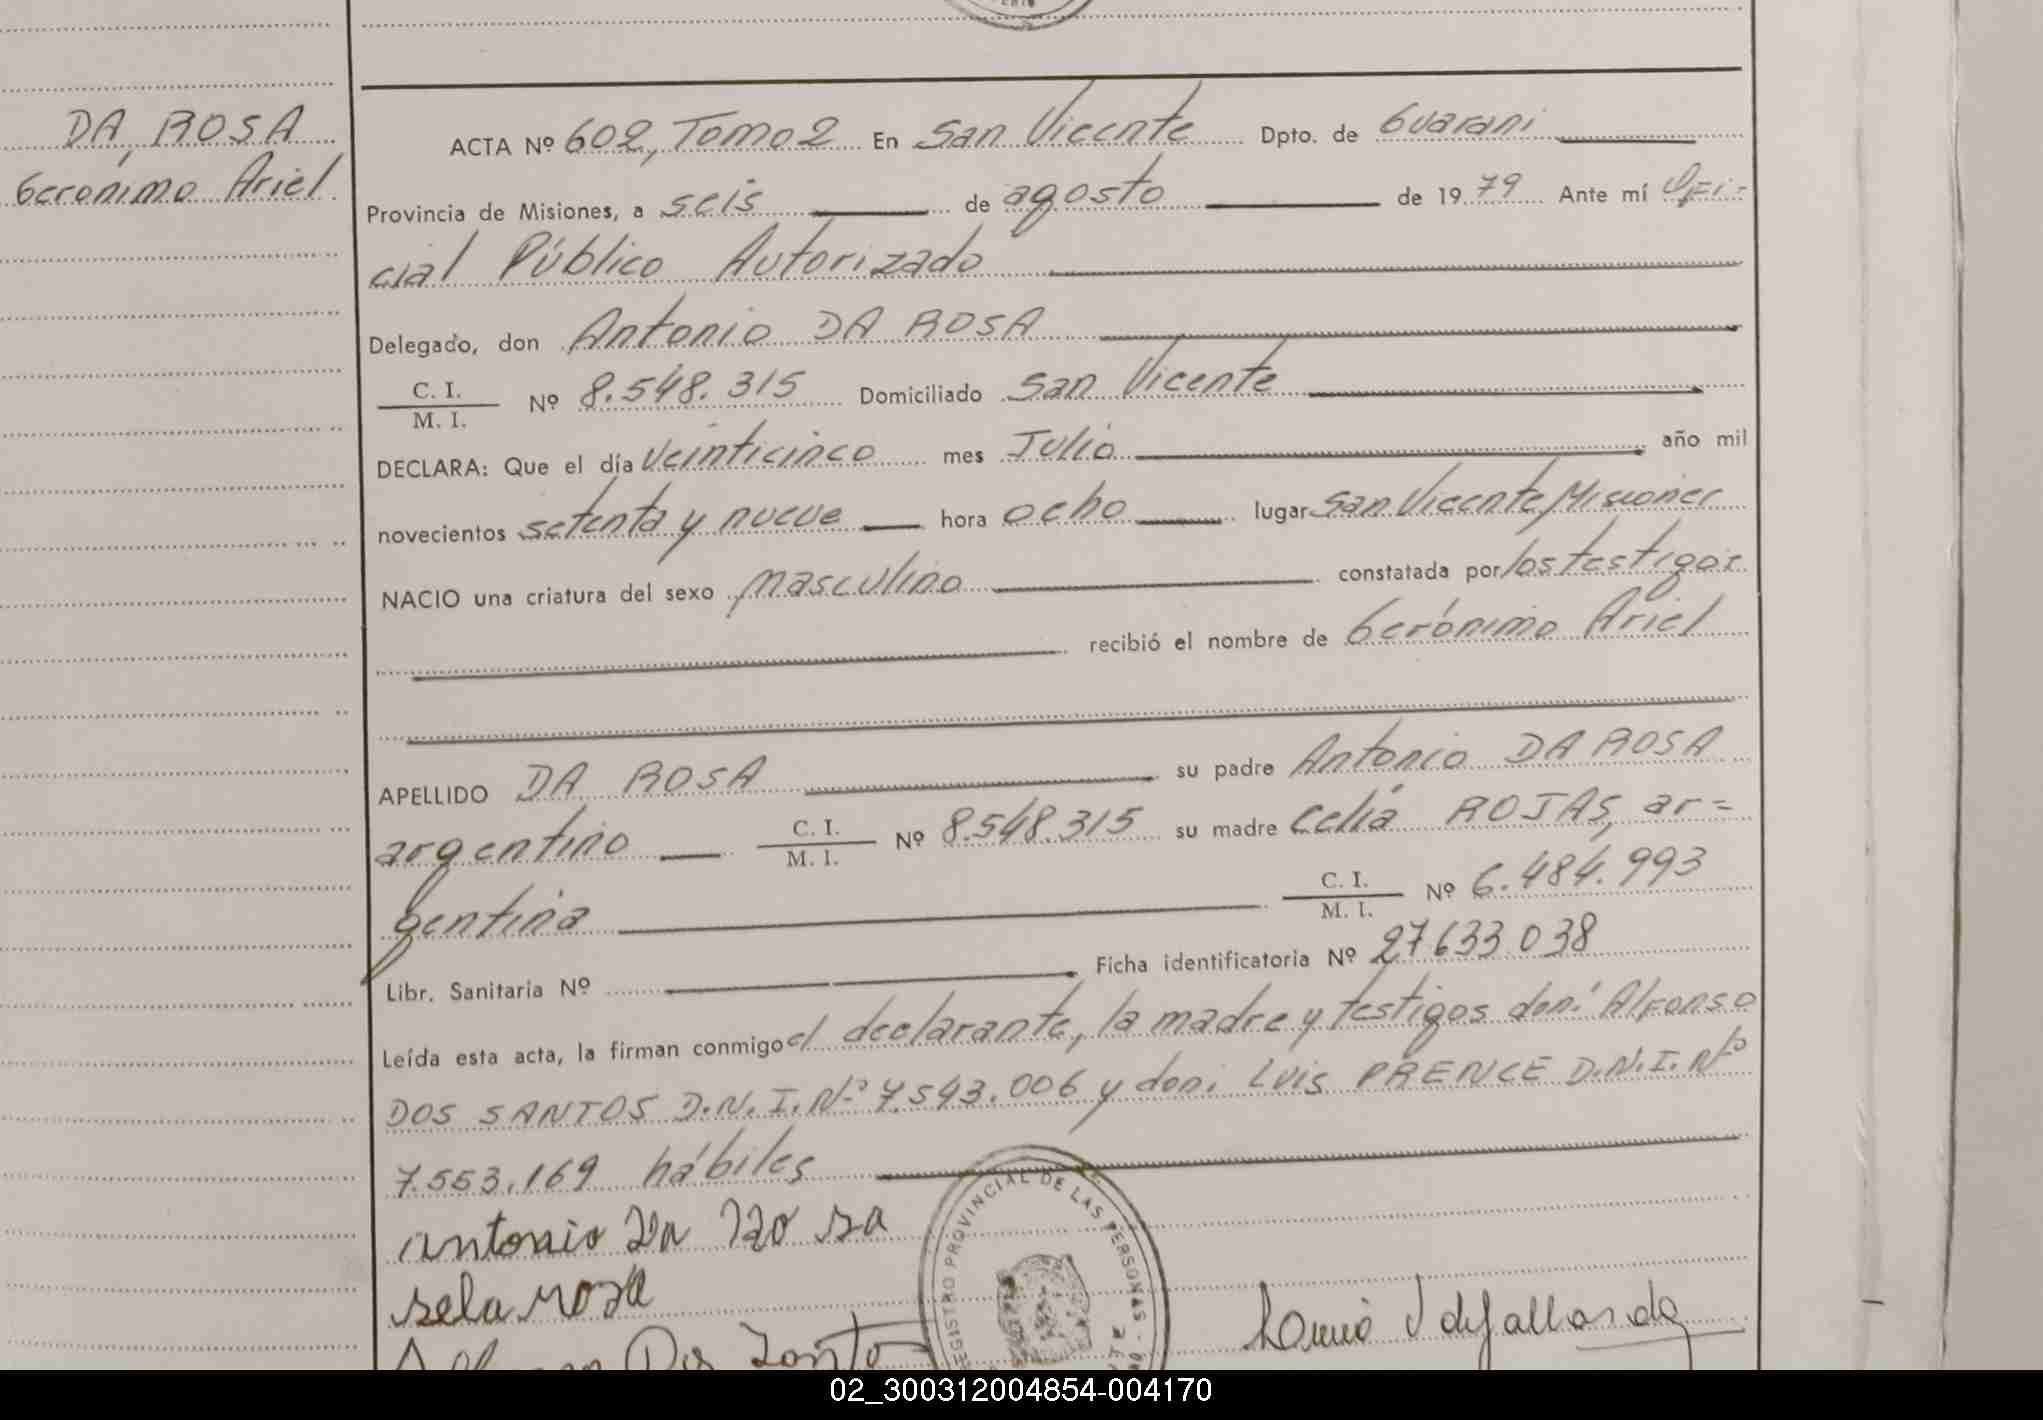 DA ROSA
Geronimo Ariel
ACTA Nº 602, Tomo 2 En San Vicente Dpto. de Guarani
Provincia de Misiones, a seis de agosto de 1979 Ante mí Ofi=
cial Público Autorizado
Delegado, don Antonio DA ROSA
C. I.
M. I. Nº 8.548.315 Domiciliado San Vicente
DECLARA: Que el día Veinticinco mes Julio año mil
novecientos setenta y nueve hora ocho lugar San Vicente, Misiones
NACIO una criatura del sexo masculino constatada por los testigos
recibió el nombre de Gerónimo Ariel
APELLIDO DA ROSA su padre Antonio DA ROSA
argentino C. I.
M. I. Nº 8.548.315 su madre Celia ROJAS, ar=
gentina C. I.
M. I. Nº 6.484.993
Libr. Sanitaria Nº Ficha identificatoria Nº 27633038
Leída esta acta, la firman conmigo el declarante, la madre y testigos don: Alfonso
DOS SANTOS D.N.I. Nº 7.543.006 y don: Luis PRENCE D.N.I. Nº
7.553.169 hábiles
antonio Da Ro sa
sela roza
Dos Santo
REGISTRO PROVINCIAL DE LAS PERSONAS
02_300312004854-004170